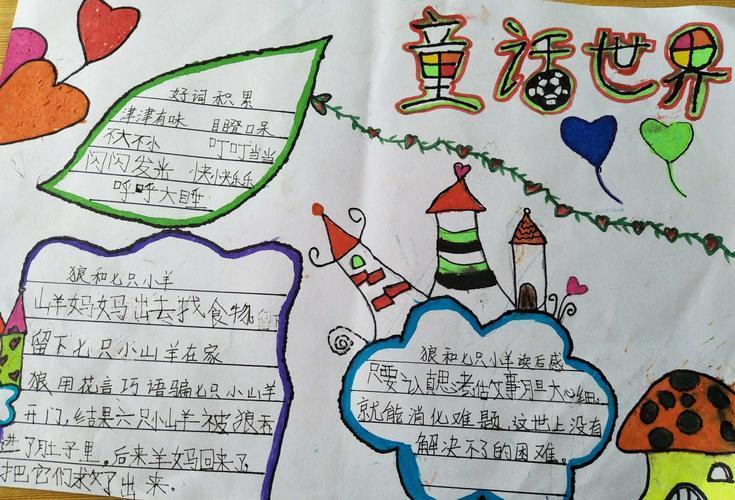 童话世界
好词积累
津津有味 目瞪口呆
不大不小 叮叮当当
闪闪发光 快快乐乐
呼呼大睡
狼和七只小羊
山羊妈妈出去找食物
留下七只小山羊在家
狼用花言巧语骗七只小山羊
开门,结果六只小山羊被狼吞
进了肚子里。后来羊妈回来了
把它们救了出来.
狼和七只小羊读后感
只要认真思考估故事胆大心细,
就能消化难题.这世上没有
解决不了的困难。